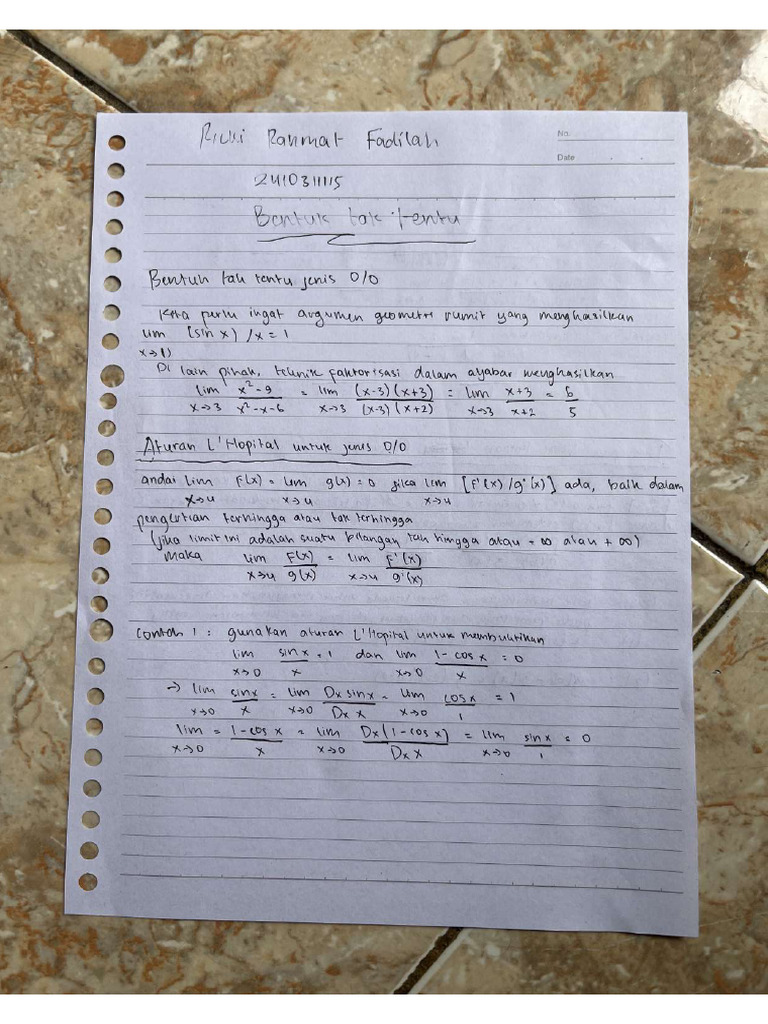 Rahmat Fadilah
No.
Date
2410311115
Bentuk tak tentu
Bentuk tak tentu jenis 0/0
Kita perlu ingat argumen geometri rumit yang menghasilkan
lim (sin x) /x = 1
x→
Di lain pihak, teknik faktorisasi dalam ayabar menghasilkan
lim x²-9 = lim (x-3)(x+3) = lim x+3 = 6
x→3 x²-x-6 x→3 (x-3)(x+2) x→3 x+2 5
Aturan L'Hopital untuk jenis 0/0
andai lim F(x) = lim g(x) = 0 jika lim [F'(x)/g'(x)] ada, baik dalam
x→u x→u x→u
pengertian terhingga atau tak terhingga
(jika limit ini adalah suatu bilangan tak hingga atau -∞ atau +∞)
Maka lim F(x) = lim F'(x)
x→u g(x) x→u g'(x)
Contoh 1 : gunakan aturan L'Hopital untuk membuktikan
lim sin x = 1 dan lim 1-cos x = 0
x→0 x x→0 x
→ lim sinx = lim Dx sinx = lim cosx = 1
x→0 x x→0 Dx x x→0 1
lim = 1-cos x = lim Dx(1-cos x) = lim sinx = 0
x→0 x x→0 Dx x x→0 1